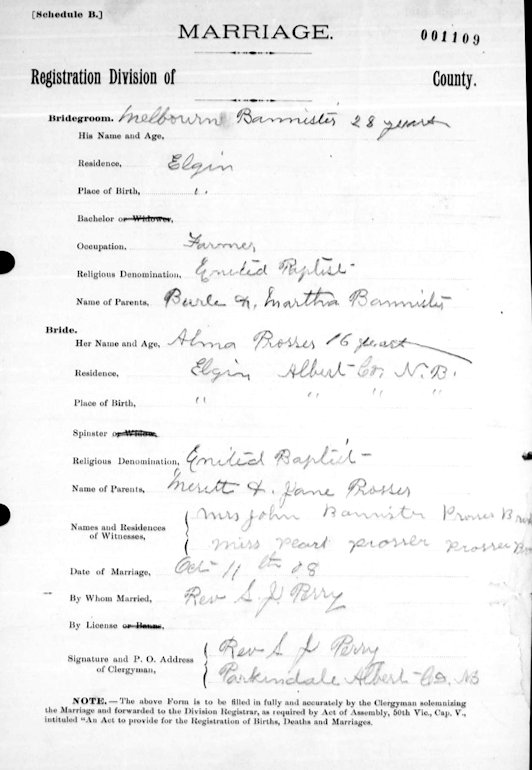 [Schedule B.]
MARRIAGE.
001109
Registration Division of County.
Bridegroom. Melbourn Bannister 28 years
His Name and Age,
Residence, Elgin
Place of Birth, "
Bachelor or Widower,
Occupation, Farmer
Religious Denomination, United Baptist
Name of Parents, Burle & Martha Bannister
Bride.
Her Name and Age, Alma Prosser 16 years
Residence, Elgin Albert Co, N.B.
Place of Birth, " " " "
Spinster or Widow,
Religious Denomination, United Baptist
Name of Parents, Meritt & Jane Prosser
Names and Residences of Witnesses, { Mrs John Bannister Prosser
Miss Pearl Prosser Prosser
Date of Marriage, Oct 11th 08
By Whom Married, Rev S. J. Perry
By License or Banns,
Signature and P. O. Address of Clergyman, { Rev S J Perry
Parkindale Albert Co. NB
NOTE.—The above Form is to be filled in fully and accurately by the Clergyman solemnizing
the Marriage and forwarded to the Division Registrar, as required by Act of Assembly, 50th Vic., Cap. V.,
intituled "An Act to provide for the Registration of Births, Deaths and Marriages.